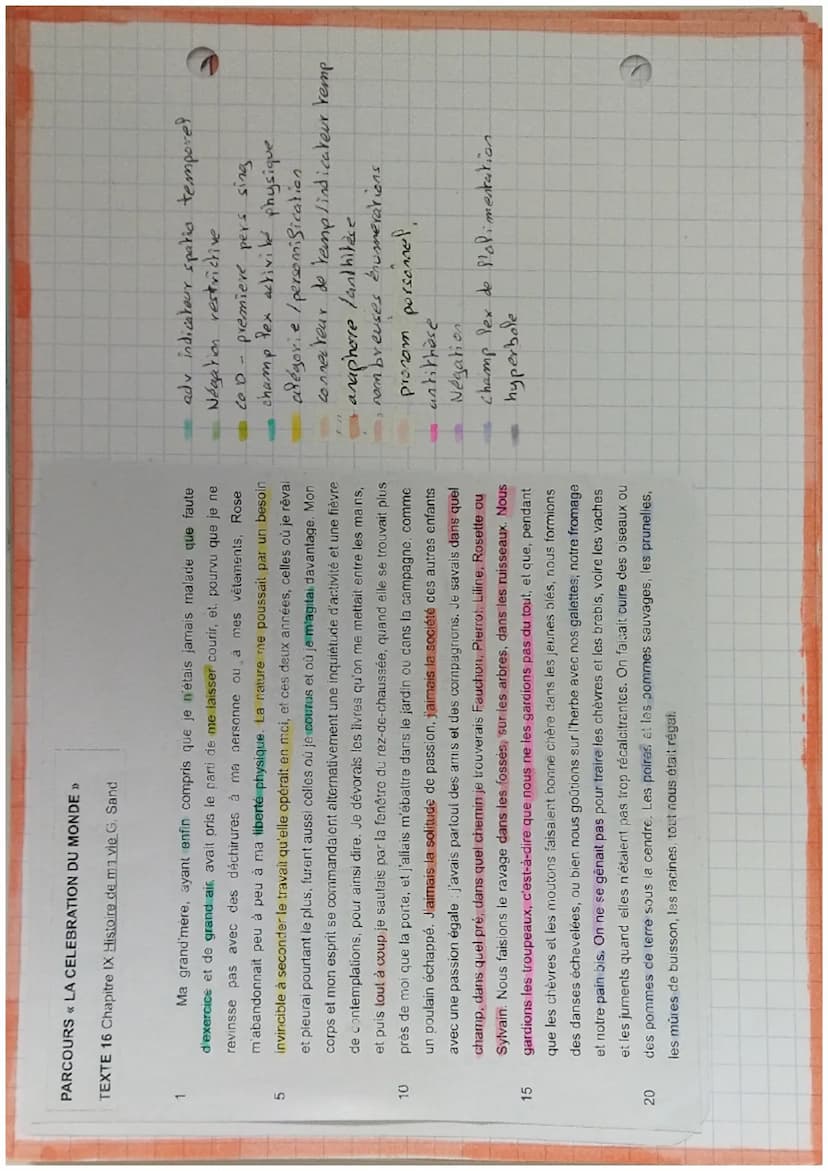 PARCOURS « LA CELEBRATION DU MONDE »
TEXTE 16 Chapitre IX Histoire de ma vie G. Sand
1 Ma grand'mère, ayant enfin compris que je n'étais jamais malade que faute
d'exercice et de grand air, avait pris le parti de me laisser courir, et, pourvu que je ne
revinsse pas avec des déchirures à ma personne ou à mes vêtements, Rose
m'abandonnait peu à peu à ma liberté physique. La nature me poussait par un besoin
5 invincible à seconder le travail qu'elle opérait en moi, et ces deux années, celles où je rêvai
et pleurai pourtant le plus, furent aussi celles où je courus et où je m'agitai davantage. Mon
corps et mon esprit se commandaient alternativement une inquiétude d'activité et une fièvre
de contemplations, pour ainsi dire. Je dévorais les livres qu'on me mettait entre les mains,
et puis tout à coup je sautais par la fenêtre du rez-de-chaussée, quand elle se trouvait plus
10 près de moi que la porte, et j'allais m'ébattre dans le jardin ou dans la campagne, comme
un poulain échappé. J'aimais la solitude de passion, j'aimais la société des autres enfants
avec une passion égale ; j'avais partout des amis et des compagnons. Je savais dans quel
champ, dans quel pré, dans quel chemin je trouverais Fauchon, Pierrot, Liline, Rosette ou
Sylvain. Nous faisions le ravage dans les fossés, sur les arbres, dans les ruisseaux. Nous
15 gardions les troupeaux, c'est-à-dire que nous ne les gardions pas du tout, et que, pendant
que les chèvres et les moutons faisaient bonne chère dans les jeunes blés, nous formions
des danses échevelées, ou bien nous goûtions sur l'herbe avec nos galettes, notre fromage
et notre pain bis. On ne se gênait pas pour traire les chèvres et les brebis, voire les vaches
et les juments quand elles n'étaient pas trop récalcitrantes. On faisait cuire des oiseaux ou
20 des pommes de terre sous la cendre. Les poires et les pommes sauvages, les prunelles,
les mûres de buisson, les racines, tout nous était régal.
adv indicateur spatio temporel
Négation restrictive
COD - première pers sing
champ lex activité physique
alégorie / personification
connecteur de temp/indicateur temp
anaphore / anthitèse
nombreuses énumérations
pronom personnel.
antithèse
Négation
champ lex de l'alimentation
hyperbole